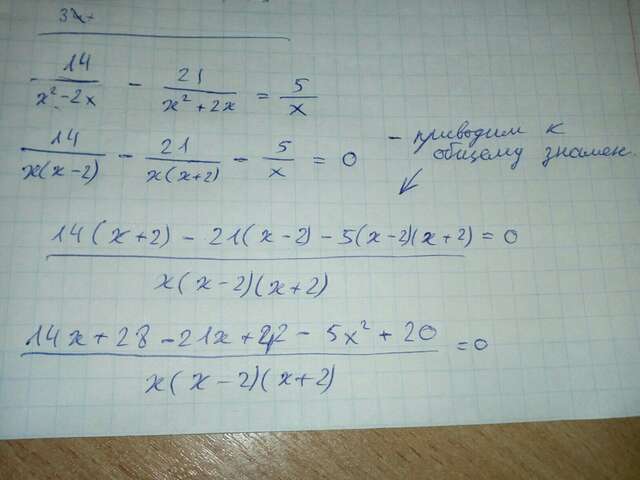 3x
14/(x²-2x) - 21/(x²+2x) = 5/x
14/(x(x-2)) - 21/(x(x+2)) - 5/x = 0
- приводим к
общему знамен.
(14(x+2) - 21(x-2) - 5(x-2)(x+2))/(x(x-2)(x+2)) = 0
(14x+28-21x+42-5x²+20)/(x(x-2)(x+2)) = 0